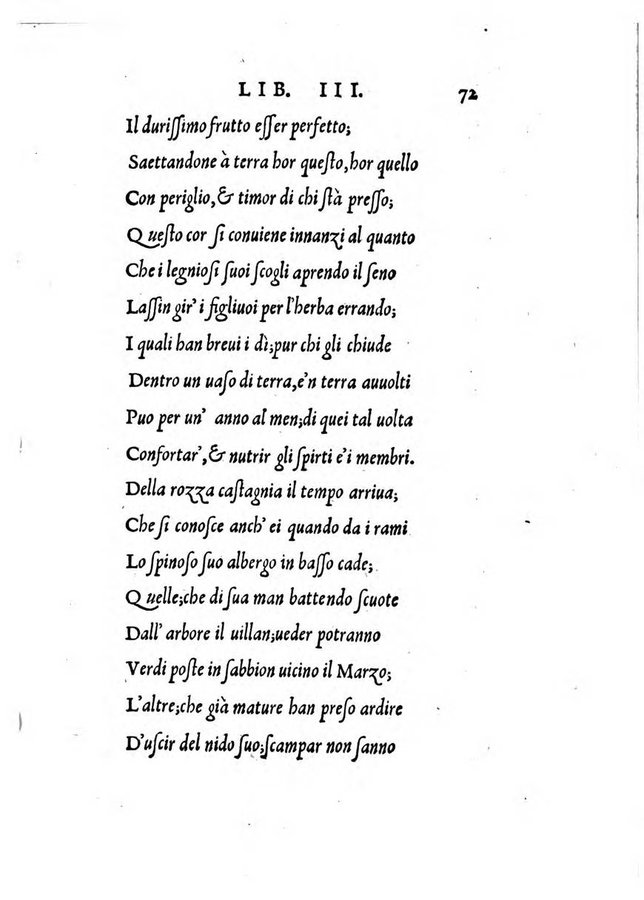 LIB. III. 72
Il durißimo frutto eſſer perfetto;
Saettandone à terra hor queſto, hor quello
Con periglio, & timor di chi ſtà preſſo;
Queſto cor ſi conuiene innanzi al quanto
Che i legnioſi ſuoi ſcogli aprendo il ſeno
Laſſin gir' i figliuoi per l'herba errando;
I quali han breui i dì; pur chi gli chiude
Dentro un uaſo di terra, e'n terra auuolti
Puo per un' anno al men; di quei tal uolta
Confortar', & nutrir gli ſpirti e'i membri.
Della rozza caſtagnia il tempo arriua;
Che ſi conoſce anch' ei quando da i rami
Lo ſpinoſo ſuo albergo in baſſo cade;
Quelle; che di ſua man battendo ſcuote
Dall' arbore il uillan; ueder potranno
Verdi poſte in ſabbion uicino il Marzo;
L'altre; che già mature han preſo ardire
D'uſcir del nido ſuo; ſcampar non ſanno